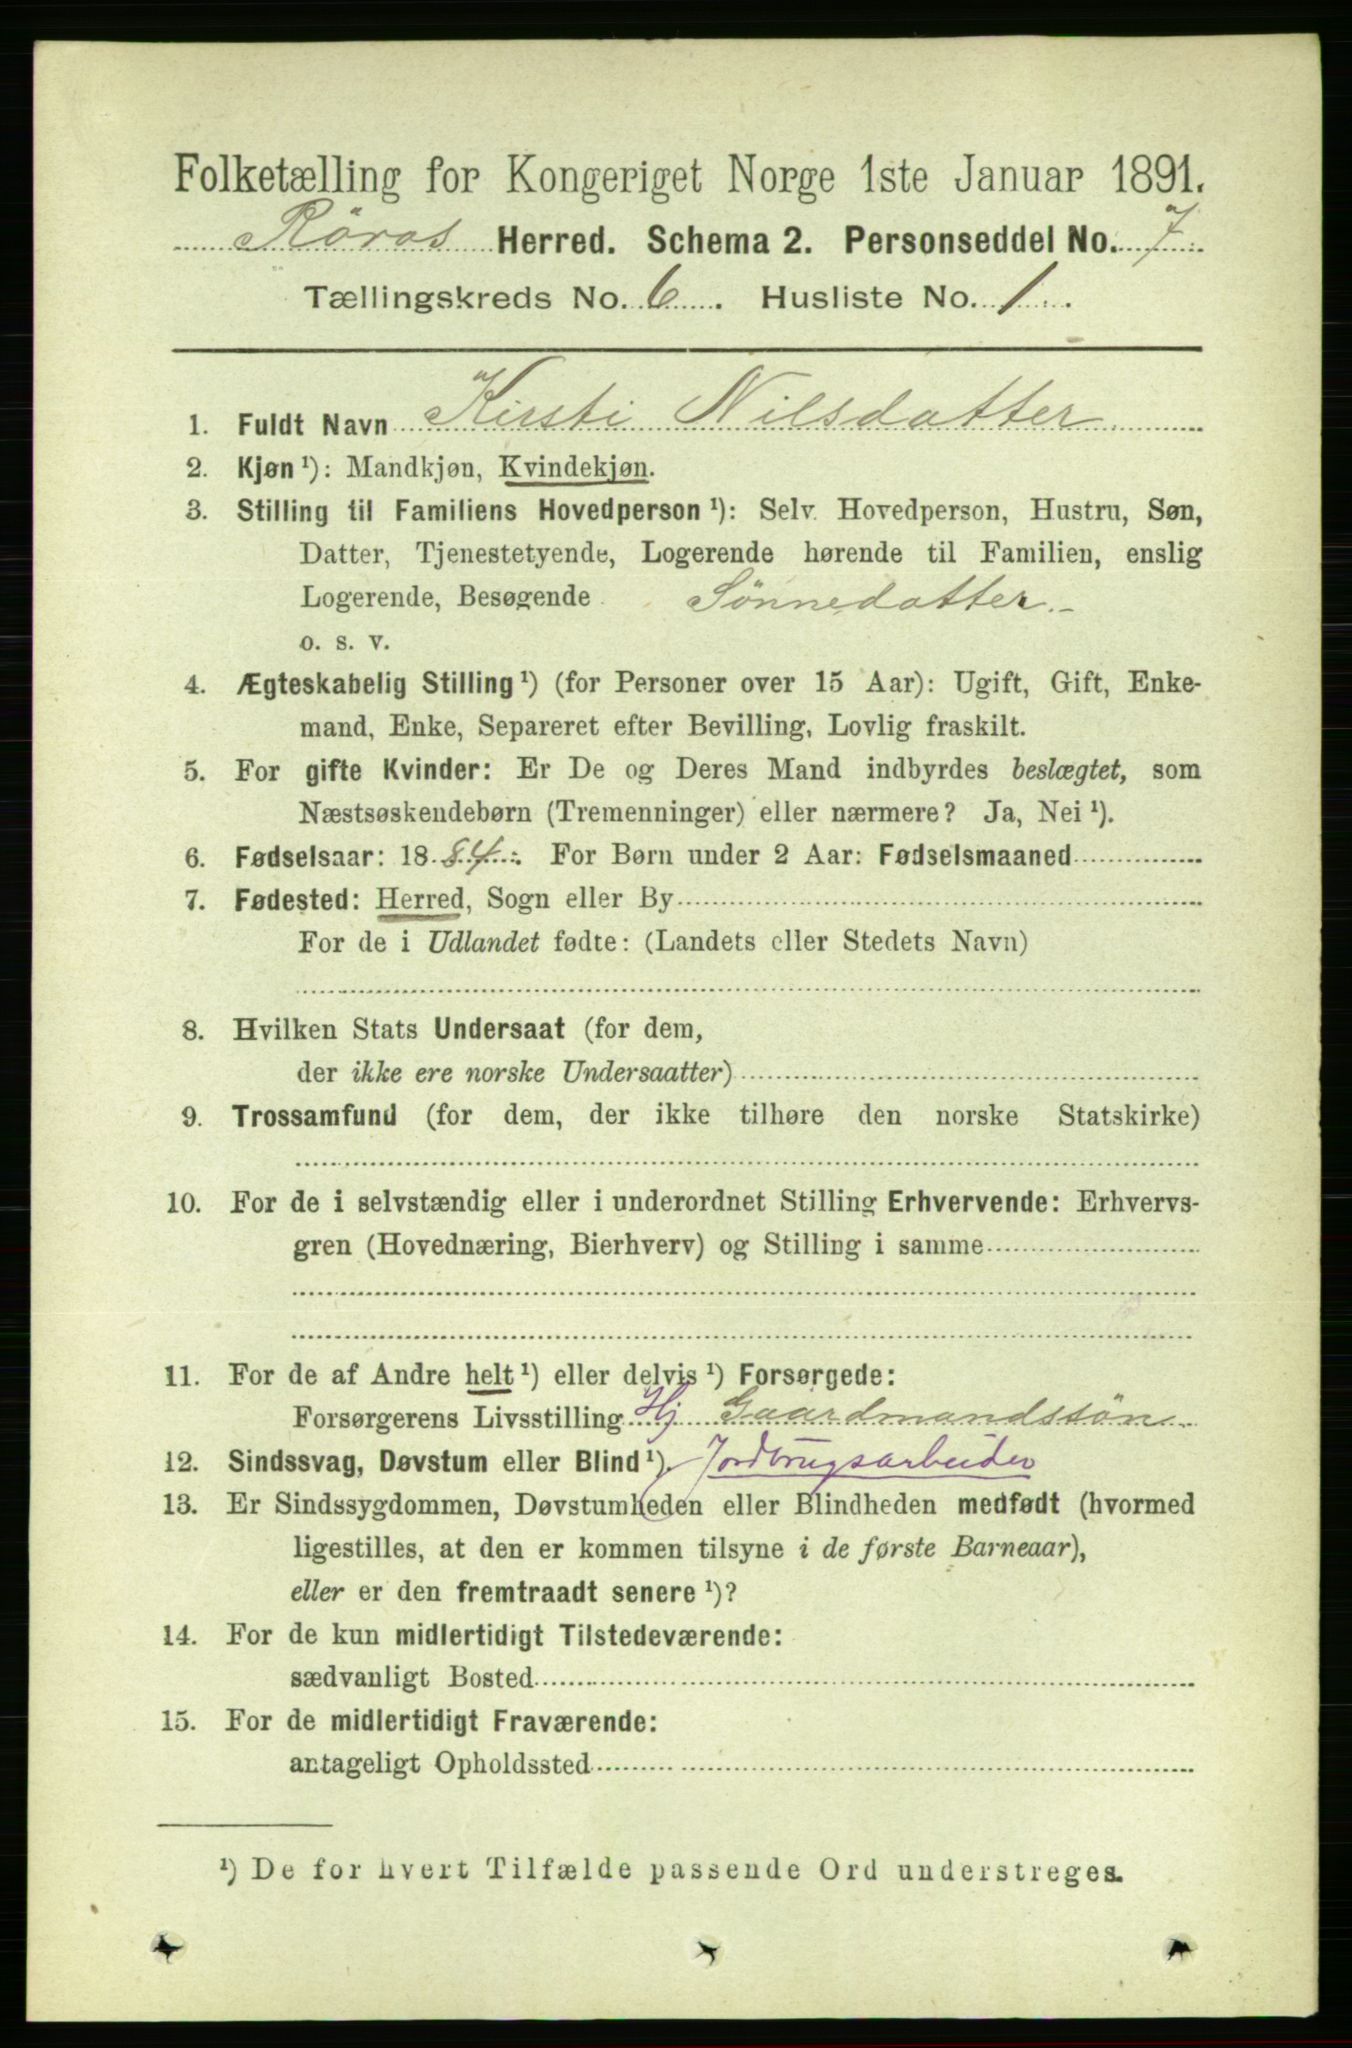 Folketælling for Kongeriget Norge 1ste Januar 1891.
Röros Herred. Schema 2. Personseddel No. 7
Tællingskreds No. 6. Husliste No. 1.
1. Fuldt Navn Kirsti Nilsdatter
2. Kjøn ¹): Mandkjøn, Kvindekjøn.
3. Stilling til Familiens Hovedperson ¹): Selv. Hovedperson, Hustru, Søn,
Datter, Tjenestetyende, Logerende hørende til Familien, enslig
Logerende, Besøgende Sönnedatter.-
o. s. v.
4. Ægteskabelig Stilling ¹) (for Personer over 15 Aar): Ugift, Gift, Enke-
mand, Enke, Separeret efter Bevilling, Lovlig fraskilt.
5. For gifte Kvinder: Er De og Deres Mand indbyrdes beslægtet, som
Næstsøskendebørn (Tremenninger) eller nærmere? Ja, Nei ¹).
6. Fødselsaar: 1884. For Børn under 2 Aar: Fødselsmaaned
7. Fødested: Herred, Sogn eller By
For de i Udlandet fødte: (Landets eller Stedets Navn)
8. Hvilken Stats Undersaat (for dem,
der ikke ere norske Undersaatter)
9. Trossamfund (for dem, der ikke tilhøre den norske Statskirke)
10. For de i selvstændig eller i underordnet Stilling Erhvervende: Erhvervs-
gren (Hovednæring, Bierhverv) og Stilling i samme
11. For de af Andre helt ¹) eller delvis ¹) Forsørgede:
Forsørgerens Livsstilling Hj Gaardmandssön
12. Sindssvag, Døvstum eller Blind ¹). Jordbrugsarbeider
13. Er Sindssygdommen, Døvstumheden eller Blindheden medfødt (hvormed
ligestilles, at den er kommen tilsyne i de første Barneaar),
eller er den fremtraadt senere ¹)?
14. For de kun midlertidigt Tilstedeværende:
sædvanligt Bosted
15. For de midlertidigt Fraværende:
antageligt Opholdssted
¹) De for hvert Tilfælde passende Ord understreges.